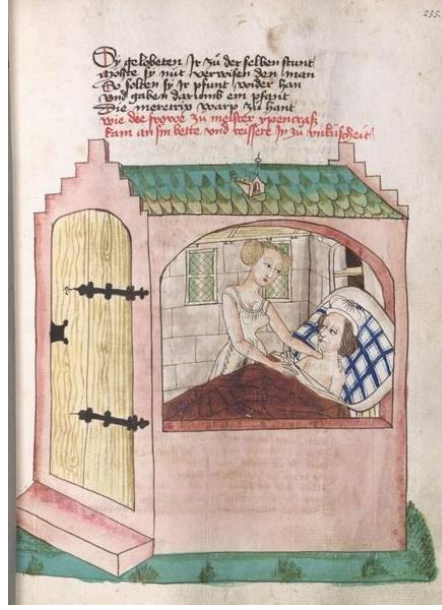 235.
Sy gelobeten Ir zů der selben stunt
Moͤhte sy nüt verwisen den man
So solten sy ir pfunt wider han
Vnd gaben darumb ein pfant
Die meretrix warp zů hant
wie die frowe zů meister ypencras
kam an sin bette und reissete in zů unkuscheit